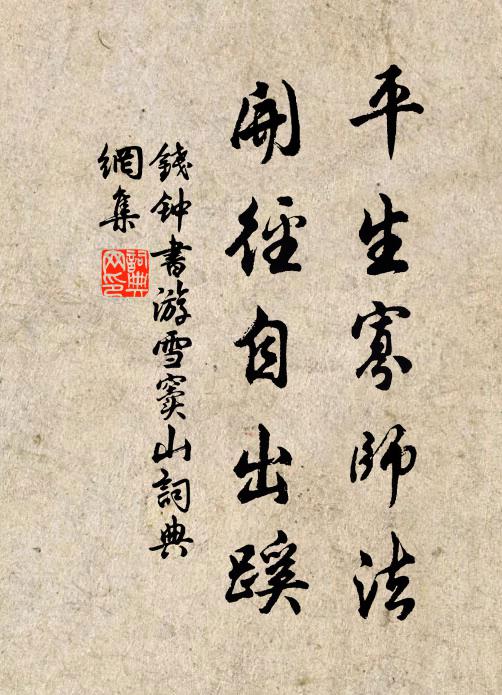 平生寡師法
開徑自出蹊
錢钟書游雪窦山詞典
網集
詞典
网印